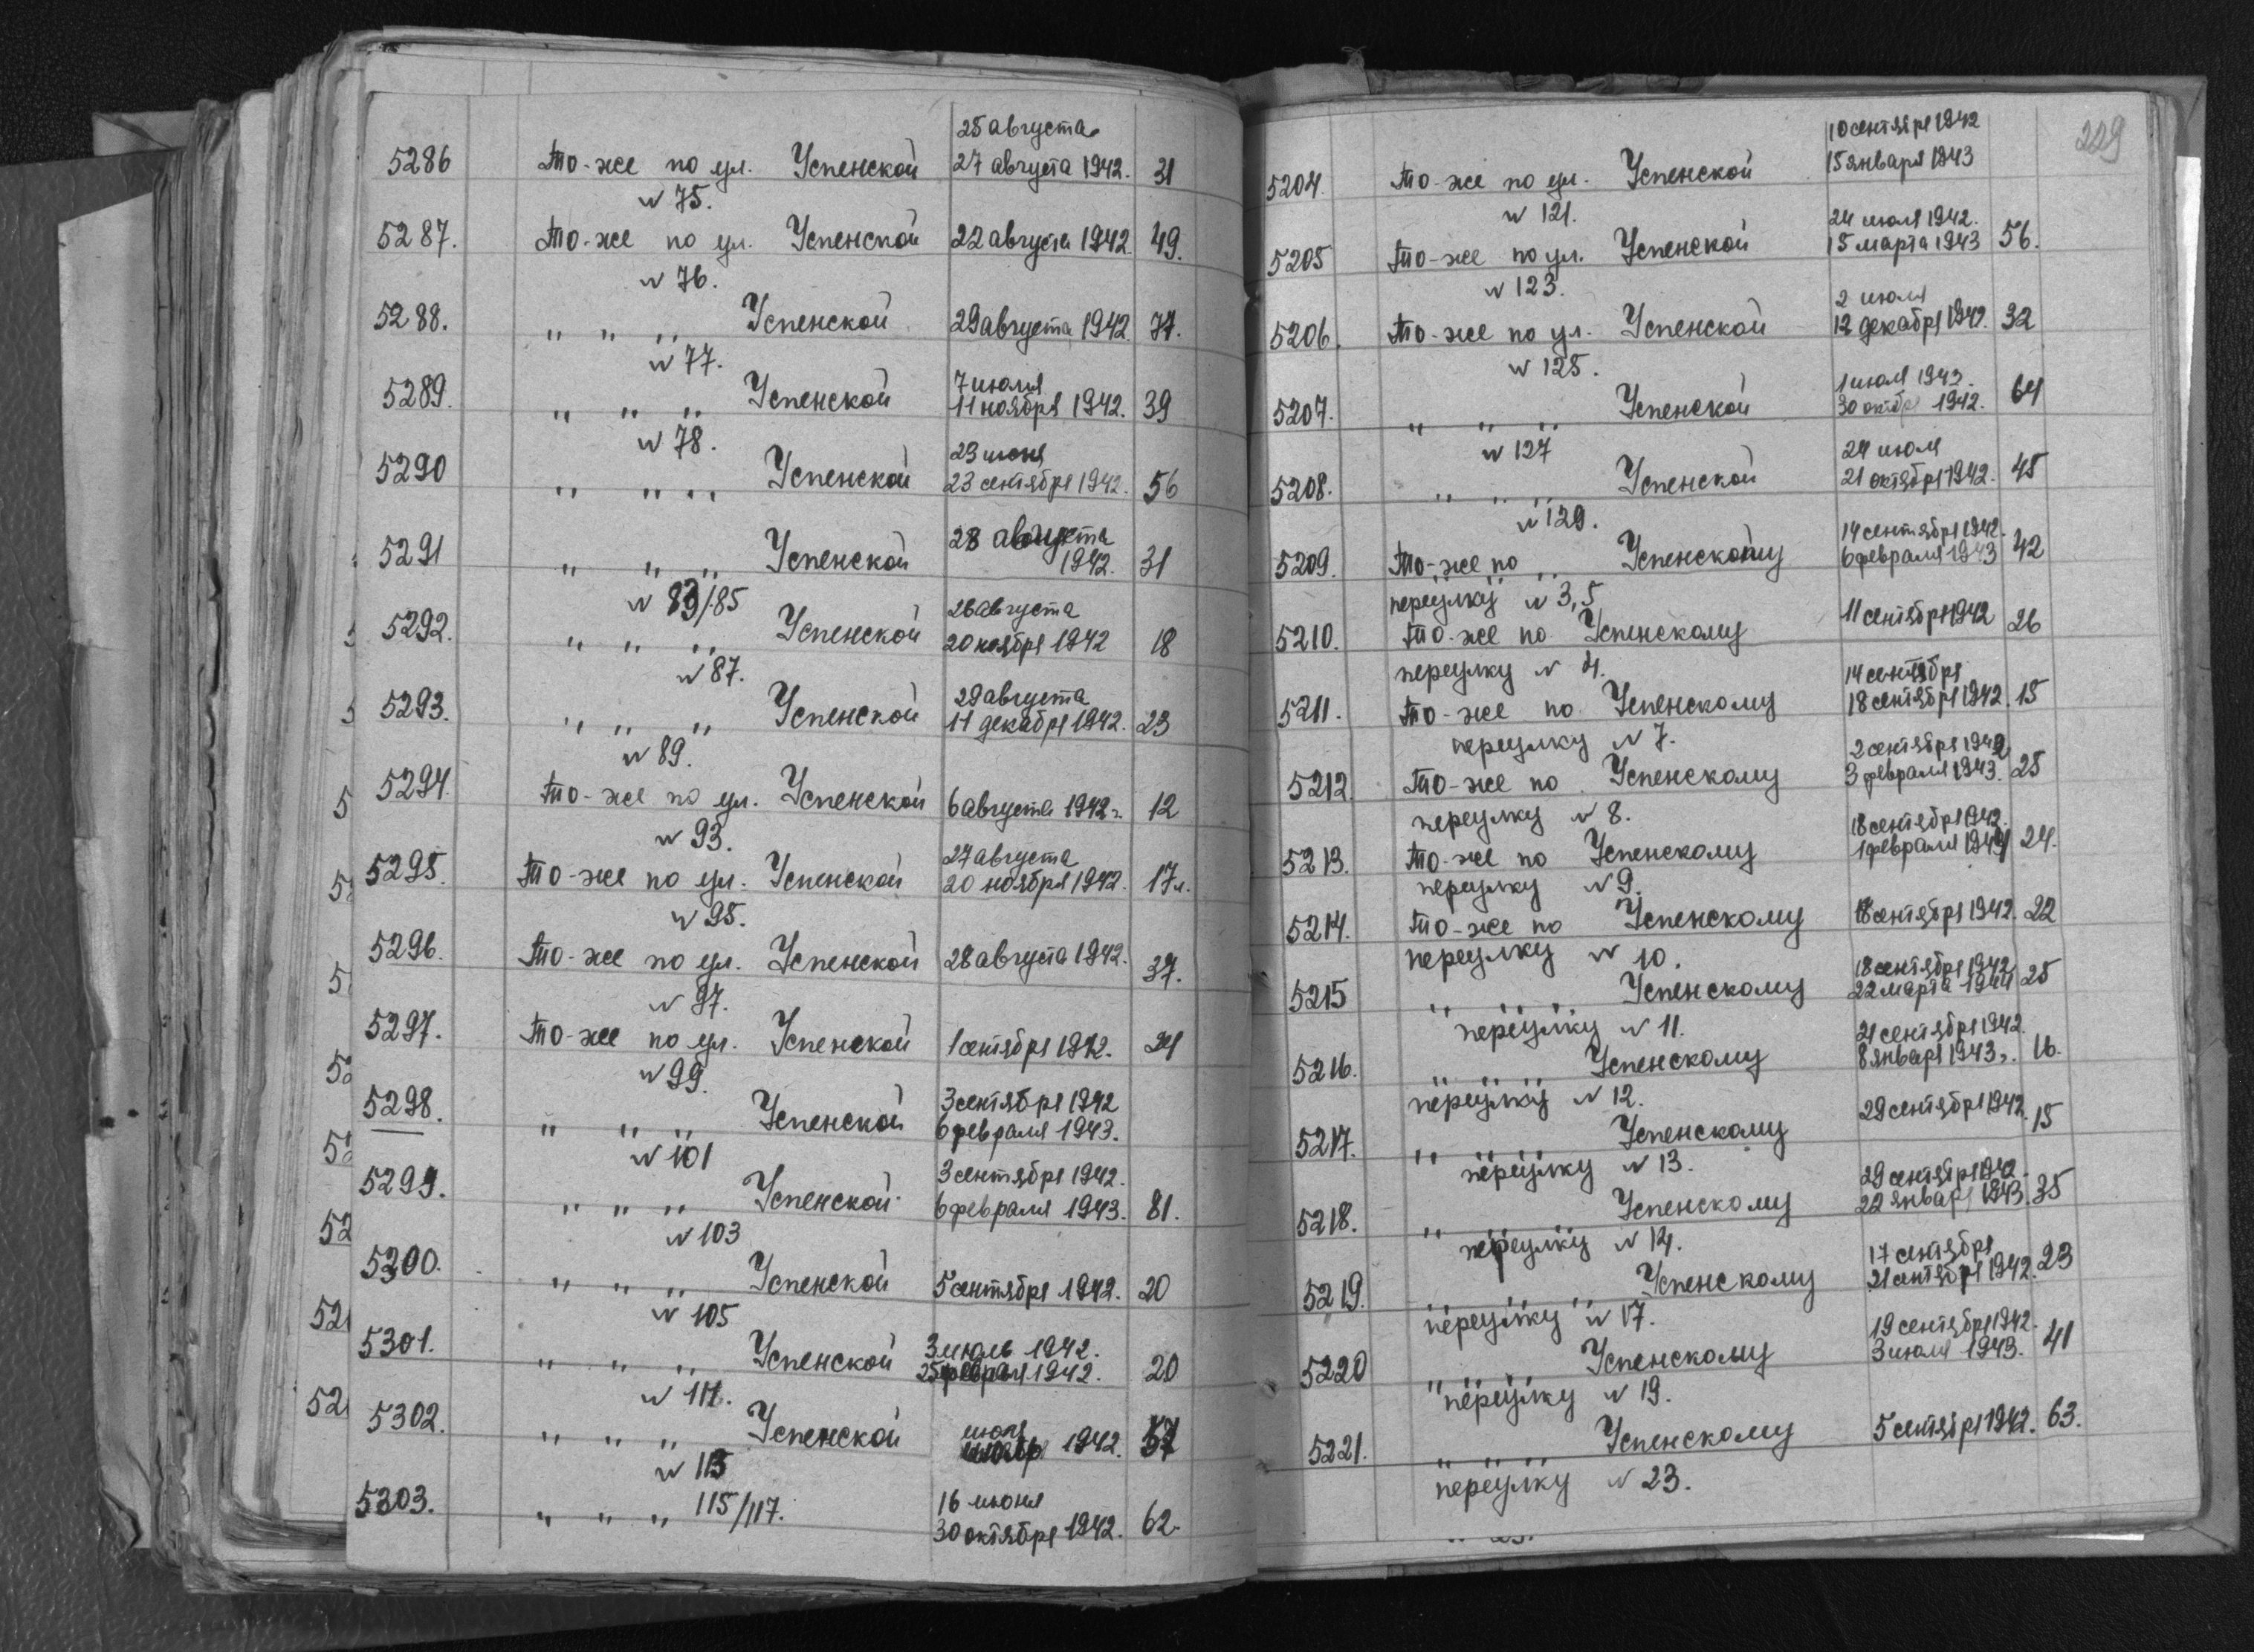 25 августа
5286 То-же по ул. Успенской 27 августа 1942. 31
N 75.
5287. То-же по ул. Успенской 22 августа 1942. 49.
N 76.
5288. " " " Успенской 29 августа 1942 77.
N 77.
7 июля
5289. " " " Успенской 11 ноября 1942. 39
N 78.
23 июня
5290 " " " Успенской 23 сентября 1942. 56
28 августа
5291 " " " Успенской 1942. 31
N 83/85
26 августа
5292. " " " Успенской 20 ноября 1942 18
N 87.
29 августа
5293. " " " Успенской 11 декабря 1942. 23
N 89.
5294. То-же по ул. Успенской 6 августа 1942 г. 12
N 93.
27 августа
5295. То-же по ул. Успенской 20 ноября 1942. 17 л.
N 95.
5296. То-же по ул. Успенской 28 августа 1942. 37.
N 97.
5297. То-же по ул. Успенской 1 сентября 1942. 24
N 99.
3 сентября 1942
5298. " " " Успенской 6 февраля 1943.
N 101
3 сентября 1942.
5299. " " " Успенской 6 февраля 1943. 81.
N 103
5300. " " " Успенской 5 сентября 1942. 20
N 105
3 июль 1942.
5301. " " " Успенской 25 февраля 1942. 20
N 111.
июня
5302. " " " Успенской 1942. 57
N 113
16 июня
5303. " " " 115/117. 30 октября 1942. 62.
229
10 сентября 1942
5204. То-же по ул. Успенской 15 января 1943
N 121.
24 июля 1942.
5205 То-же по ул. Успенской 15 марта 1943 56.
N 123.
2 июля
5206. То-же по ул. Успенской 12 декабря 1942. 32
N 125.
1 июля 1943.
5207. " " " Успенской 30 октябр 1942. 64
N 127
24 июля
5208. " " " Успенской 21 октября 1942. 45
N 129.
14 сентября 1942.
5209. То-же по " Успенскому 6 февраля 1943 42
переулку N 3,5
5210. То-же по Успенскому 11 сентября 1942 26
переулку N 4.
14 сентября
5211. То-же по Успенскому 18 сентября 1942. 15
переулку N 7.
2 сентября 1942
5212. То-же по Успенскому 3 февраля 1943. 25
переулку N 8.
18 сентября 1942.
5213. То-же по Успенскому 1 февраля 1944 24.
переулку N 9.
5214. То-же по Успенскому 18 сентября 1942. 22
переулку N 10.
18 сентября 1942
5215 " " " Успенскому 22 марта 1944 25
переулку N 11.
21 сентября 1942.
5216. " " " Успенскому 8 января 1943 г. 16.
переулку N 12.
5217. " " " Успенскому 29 сентября 1942. 15
переулку N 13.
29 сентября 1942.
5218. " " " Успенскому 22 январ 1943. 35
переулку N 14.
17 сентября
5219. " " " Успенскому 21 сентября 1942. 23
переулку N 17.
19 сентября 1942.
5220 " " " Успенскому 3 июля 1943. 41
переулку N 19.
5221. " " " Успенскому 5 сентября 1942. 63.
переулку N 23.